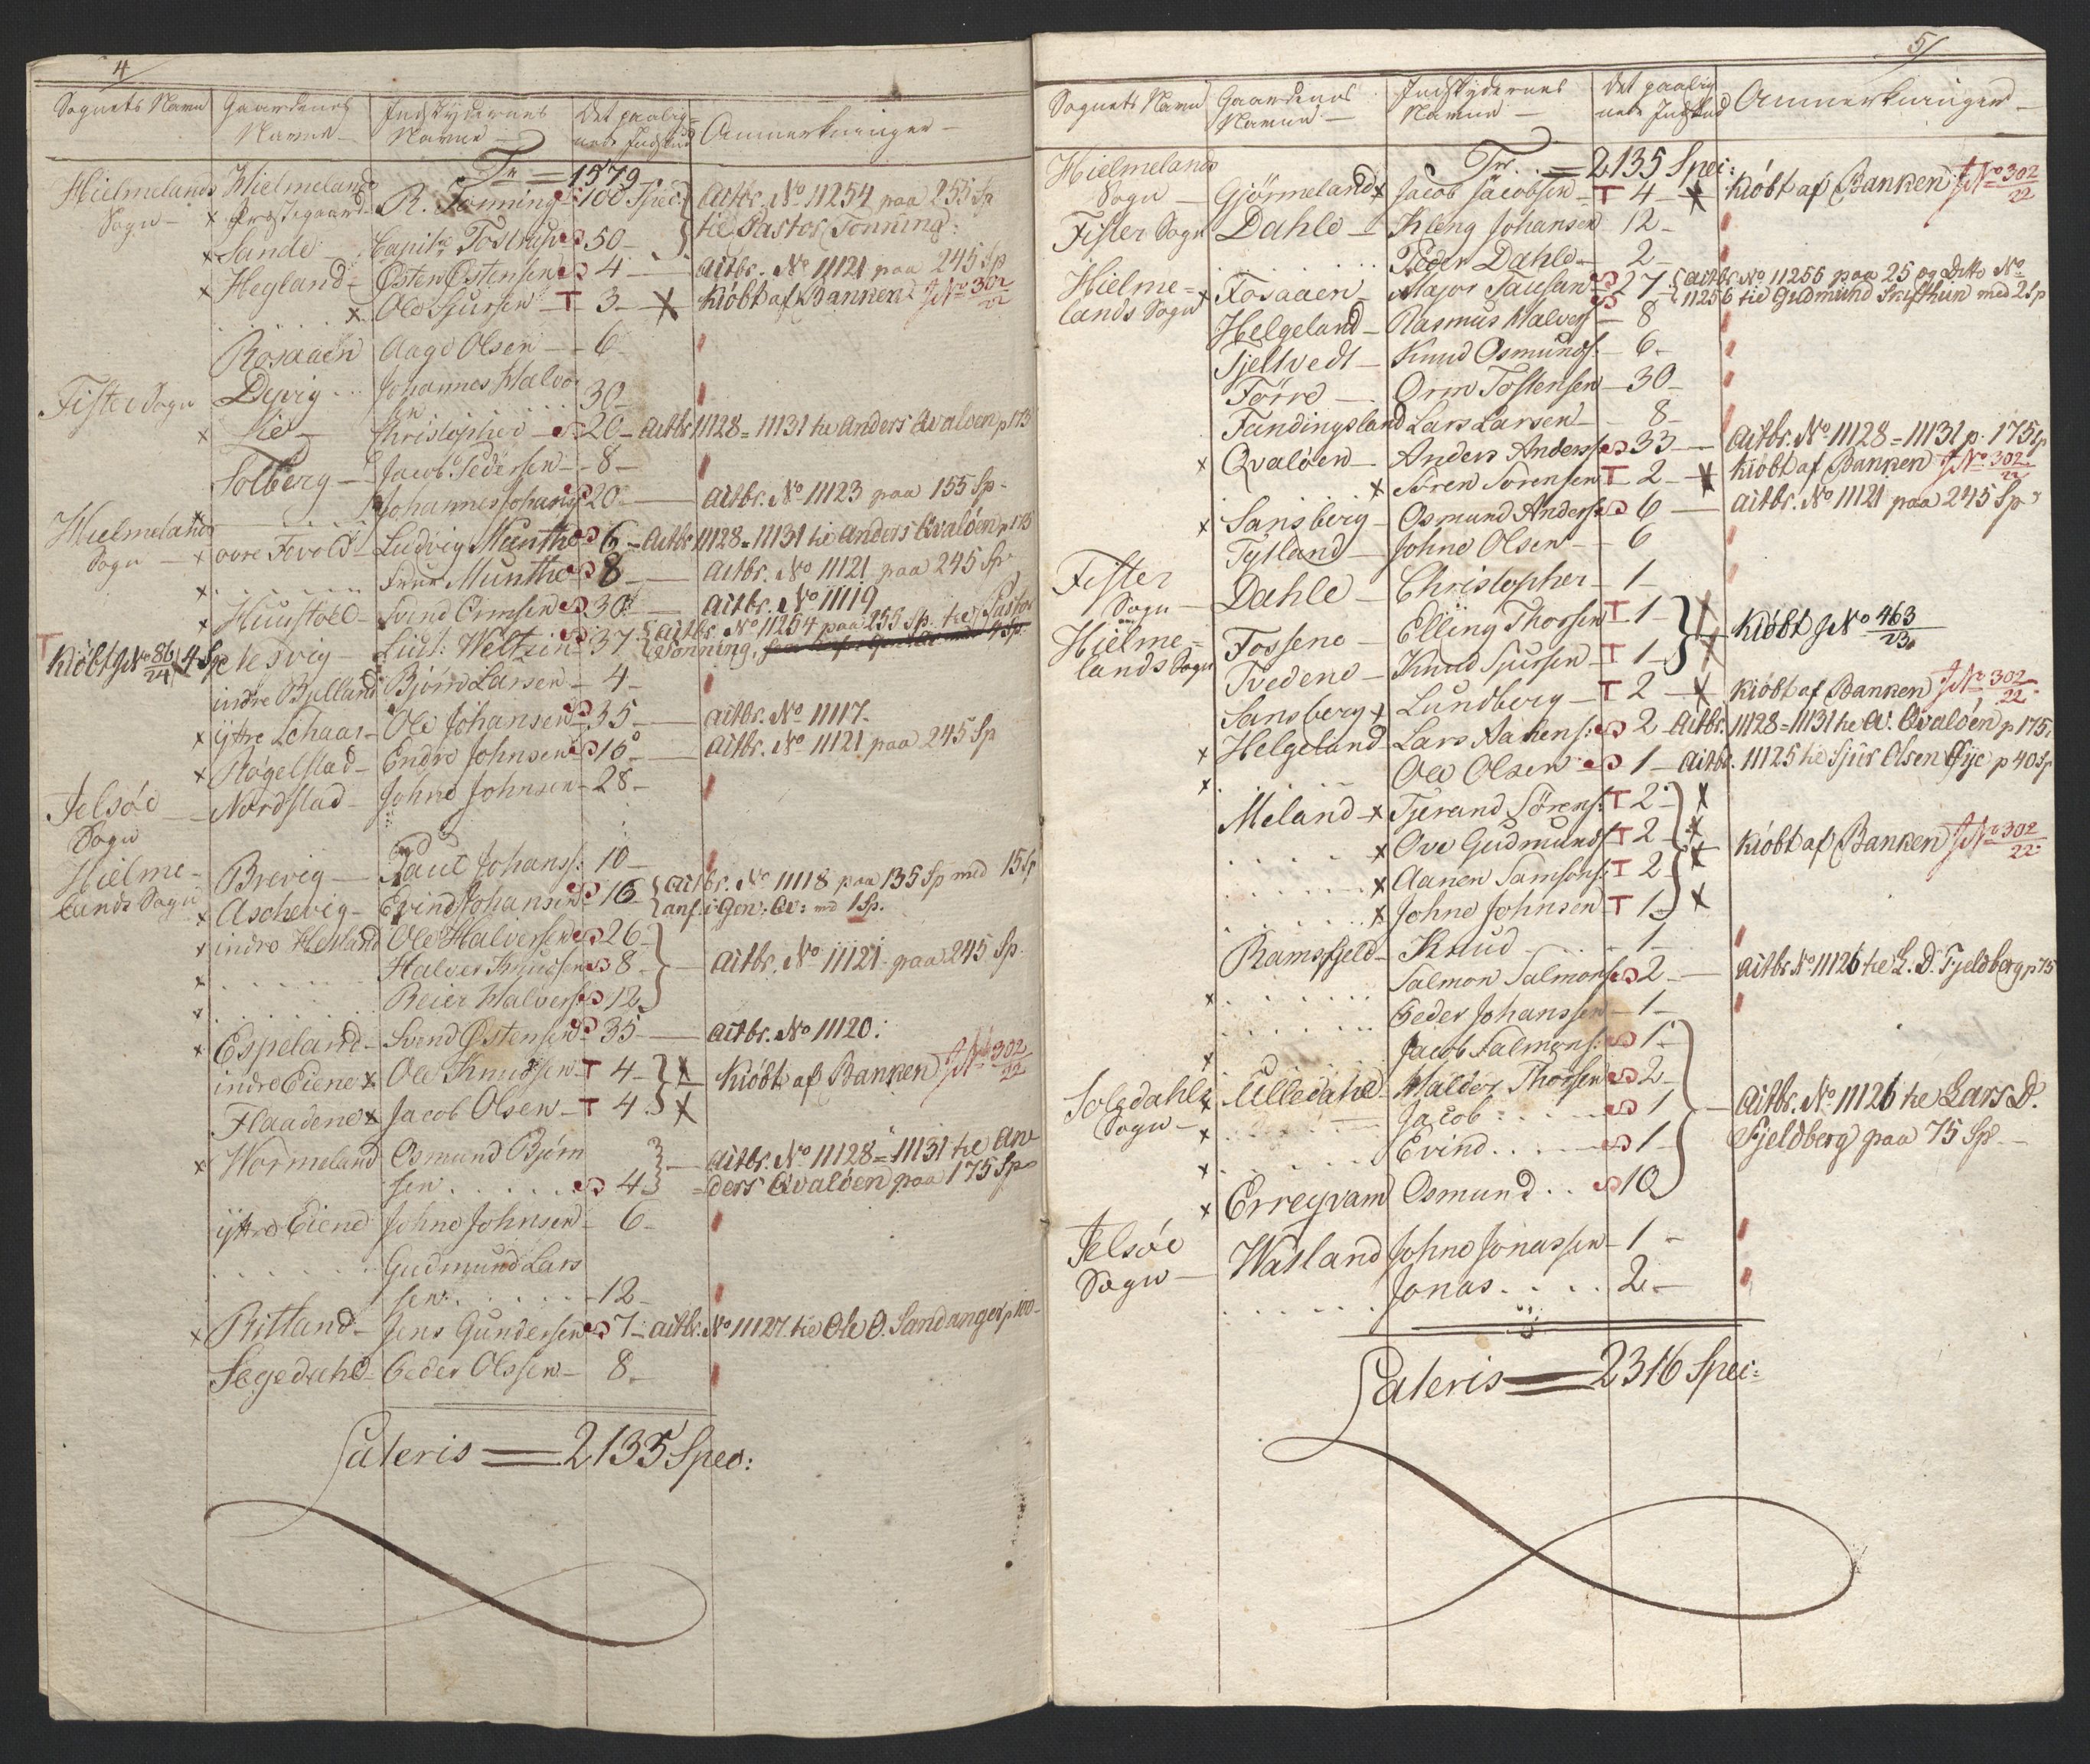 4
Sognets Navn Gaardenes Navne Indskydernes Navne Det paalignede Indskud Anmerkninger
Tr = 1579
Hielmelands Sogn x Hielmelands Præstegaard R. Tonning 100 Spec: Actbr. No 11254 paa 255 Sp
x Sande Capit: 50 til Pastor Tonning:
x Hegland Østen Østensen 4 Actbr. No 11121 paa 245 Sp
x Ole Sjursen T 3 x Kiøbt af Banken JNo 302/22
Rosaaen Aage Olsen 6
Fister Sogn Devig Johannes Halvorsen 30
x Lie Christopher 20 Actbr 11128 = 11131 til Anders Qvaløen p 175
Solberg Jacob Pedersen 8
x Johannes Johans 20 Actbr. No 11123 paa 155 Sp
Hielmelands Sogn x øvre Tvedt Ludvig Munthe 6 Actbr 11128 = 11131 til Anders Qvaløen p 175
x Frue Munthe 8 Actbr. No 11121 paa 245 Sp
x Huustoel Svend Ormsen 30 Actbr. No 11119
T Kiøbt JNo 86/24 4 Sp Nesvig Lieut: Weltzin 37 Actbr. No 11254 paa 255 Sp. til Pastor
Tonning,
indre Bjelland Bjørn Larsen 4
x ÿttre Lehaar Ole Johansen 35 Actbr. No 11117
x Høgelstad Endre Johnsen 16 Actbr. No 11121 paa 245 Sp
Jelsøe Sogn Nordstad Johne Johnsen 28
Hielmelands Sogn Brevig Paul Johanss: 10
x Aschevig Evind Johansen 16 Actbr. No 11118 paa 135 Sp med 15 Sp
anf. i Gen: Qv: med 1 Sp.
x indre Hetland Ole Halversen 26
x Halver Knudsen 8 Actbr. No 11121 paa 245 Sp.
x Reier Halvers 12
x Espeland Svend Østensen 35 Actbr. No 11120.
indre Eiene x Ole Knudsen T 4 x Kiøbt af Banken JNo 302/22
Flaadene x Jacob Olsen T 4 x
x Wormeland Osmund Bjørn Actbr. No 11128 = 11131 til An-
sen 4 =ders Qvaløen paa 175 Sp
ÿttre Eiene Johne Johnsen 6
Gudmund Lars
sen 12
x Ritland Jens Gundersen 7 Actbr. No 11127 til Ole O. Sandanger p 100
Segedahl Peder Olssen 8
Lateris = 2135 Spec:
5
Sognets Navn Gaardenes Navne Indskydernes Navne Det paalignede Indskud Anmerkninger
Tr. = 2135 Spec:
Hielmelands Sogn Gjörmeland x Jacob Jacobsen T 4 x Kiøbt af Banken JNo 302/22
Fister Sogn Dahle Kleng Johansen 12
Peder Dahle 2
Hielmelands Sogn x Fosaaen Major Tausan 27 Actbr No 11255 paa 25 og Ditto No
11256 til Gudmund med 2 Sp
Helgeland Rasmus Halvers 8
Tjeltvedt Knud Osmunds: 6
Førre Orm Tostensen 30
Fundingsland Lars Larsen 8
x Qvaløen Anders Anders 33 Actbr. No 11128 = 11131 p. 175 Sp
x Søren Sørensen T 2 x Kiøbt af Banken JNo 302/22
x Sansberg Osmund Anders 6 Actbr. No 11121 paa 245 Sp
Tytland Johne Olsen 6
Fister Sogn Dahle Christopher 1
Hielmelands Sogn Fossene Elling Thorsen T 1 x Kiøbt JNo 463/23
Tvedene Knud Sjursen T 1 x
Sansberg x Lundberg T 2 x Kiøbt af Banken JNo 302/22
x Helgeland Lars Aakens: 2 Actbr. 11128 = 11131 til A. Qvaløen p 175
x Ole Olsen 1 Actbr. 11125 til Sjur Olsen Øÿe p 40 Sp
Meland x Tjerand Sørens: T 2 x
x Ove Gudmunds T 2 x Kiøbt af Banken JNo 302/22
x Aanen Samsons: T 2 x
x Johne Johnsen T 1 x
Ramsfjeld Knud 1
x Salmon Salmons 2 Actbr No 11126 til L. D. Fjeldberg p 75
Peder Johanssen 1
x Jacob Salmons: 1
Soledahls Sogn x Ulledahl Halder Thorsen 2 Actbr. No 11126 til Lars D.
x Jacob 1 Fjeldberg paa 75 Sp.
x Evind 1
x Erregvam Osmund 10
Jelsøe Sogn Watland Johne Jonassen 1
Jonas 2
Lateris = 2316 Spec: